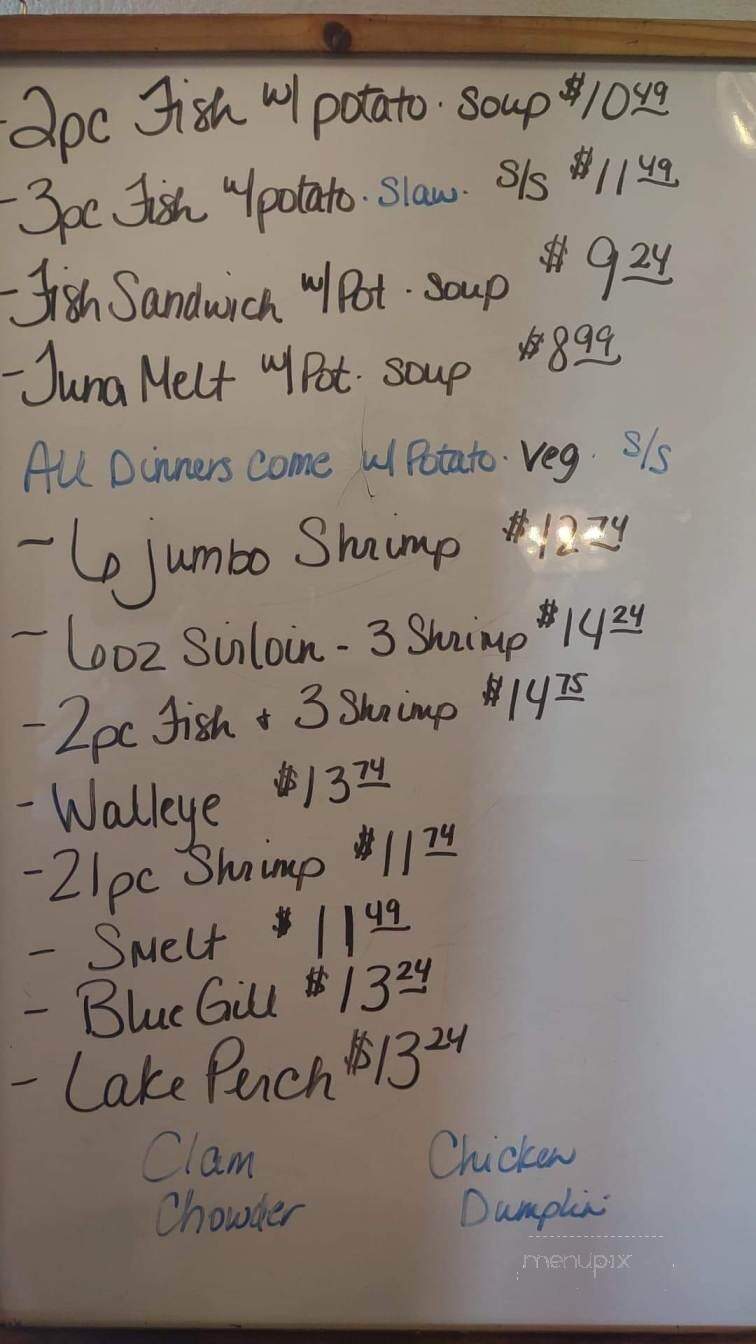 - 2pc Fish w/ potato. soup $10 49
- 3pc Fish w/ potato. Slaw. S/S $11 49
- Fish Sandwich w/ Pot. soup $9 24
- Tuna Melt w/ Pot. soup $8 99
All Dinners come w/ Potato. Veg. S/S
- 6 jumbo Shrimp $12 74
- 6oz Sirloin - 3 Shrimp $14 24
- 2pc Fish + 3 Shrimp $14 75
- Walleye $13 74
- 21pc Shrimp $11 74
- Smelt $11 49
- Blue Gill $13 24
- Lake Perch $13 24
Clam Chicken
Chowder Dumplin
menupix